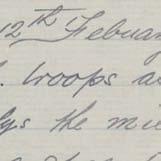 12th Febuar
. troops as
lys the mu